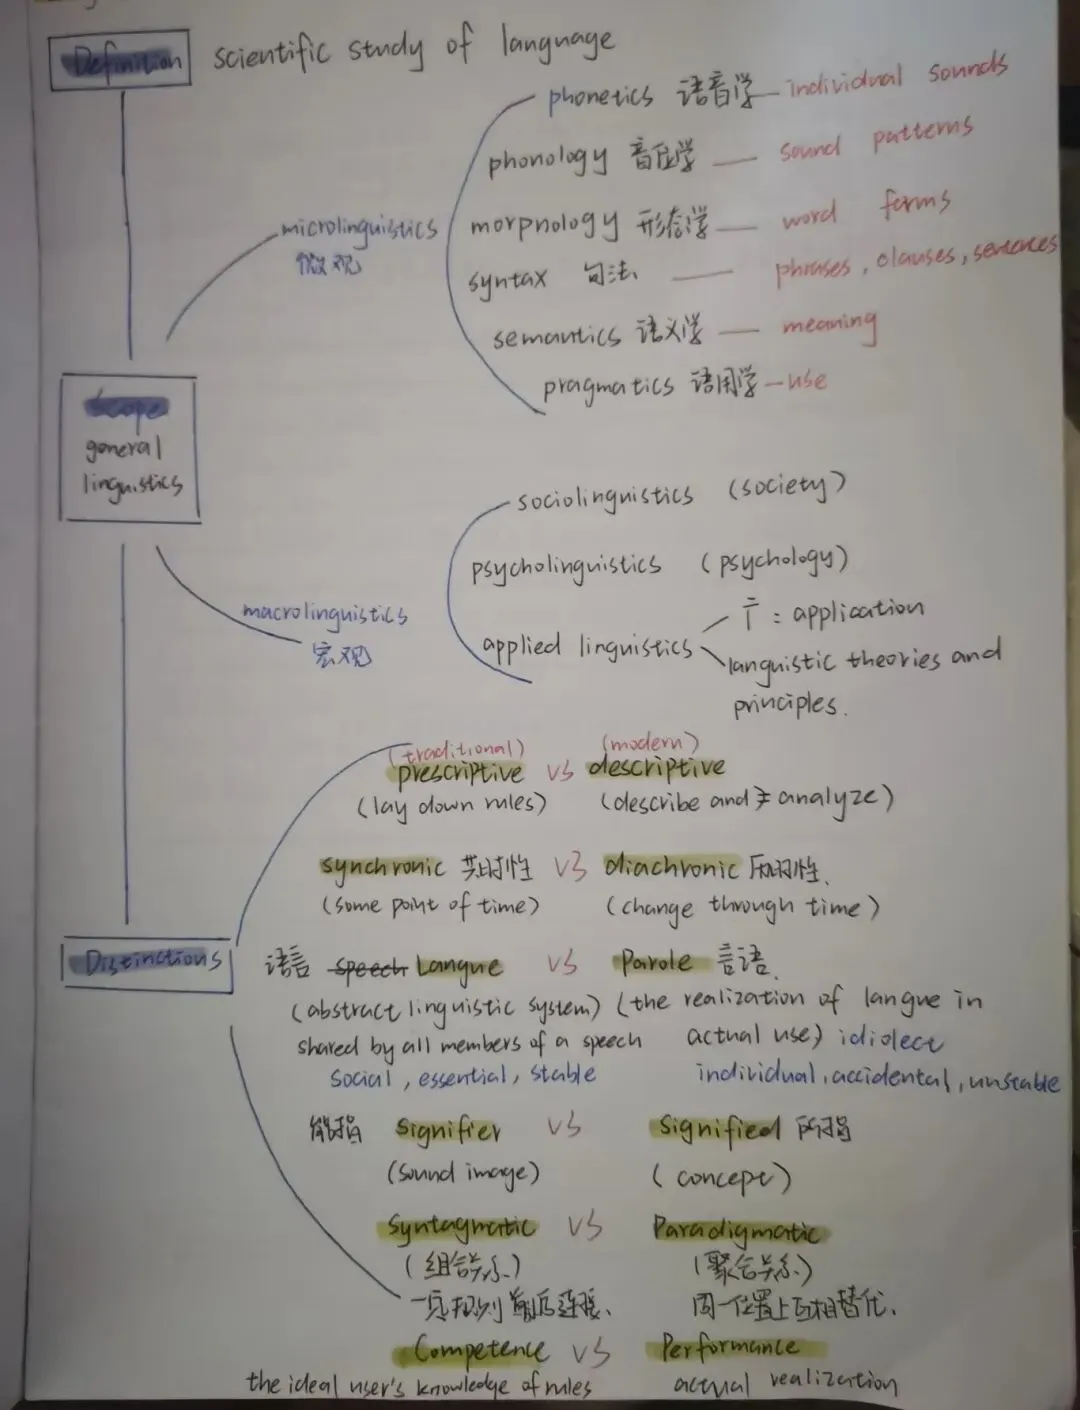 Definition scientific study of language
phonetics 语音学 — individual sounds
phonology 音位学 — sound patterns
morpnology 形态学 — word forms
microlinguistics
微观
syntax 句法 — phrases, clauses, sentences
semantics 语义学 — meaning
pragmatics 语用学 — use
Scope
general
linguistics
sociolinguistics (society)
psycholinguistics (psychology)
macrolinguistics
宏观
applied linguistics
: application
languistic theories and
principles.
(traditional) (modern)
prescriptive VS descriptive
(lay down rules) (describe and analyze)
synchronic 共时性 VS diachronic 历时性.
(some point of time) (change through time)
Distinctions
语言 speech Langue VS Parole 言语.
(abstract linguistic system) (the realization of langue in
shared by all members of a speech actual use) idiolect
social, essential, stable individual, accidental, unstable
能指 Signifier VS Signified 所指
(sound image) (concept)
Syntagmatic VS Paradigmatic
(组合关系) (聚合关系)
规则前后连接. 同一位置上互相替代.
Competence VS Performance
the ideal user's knowledge of rules actual realization